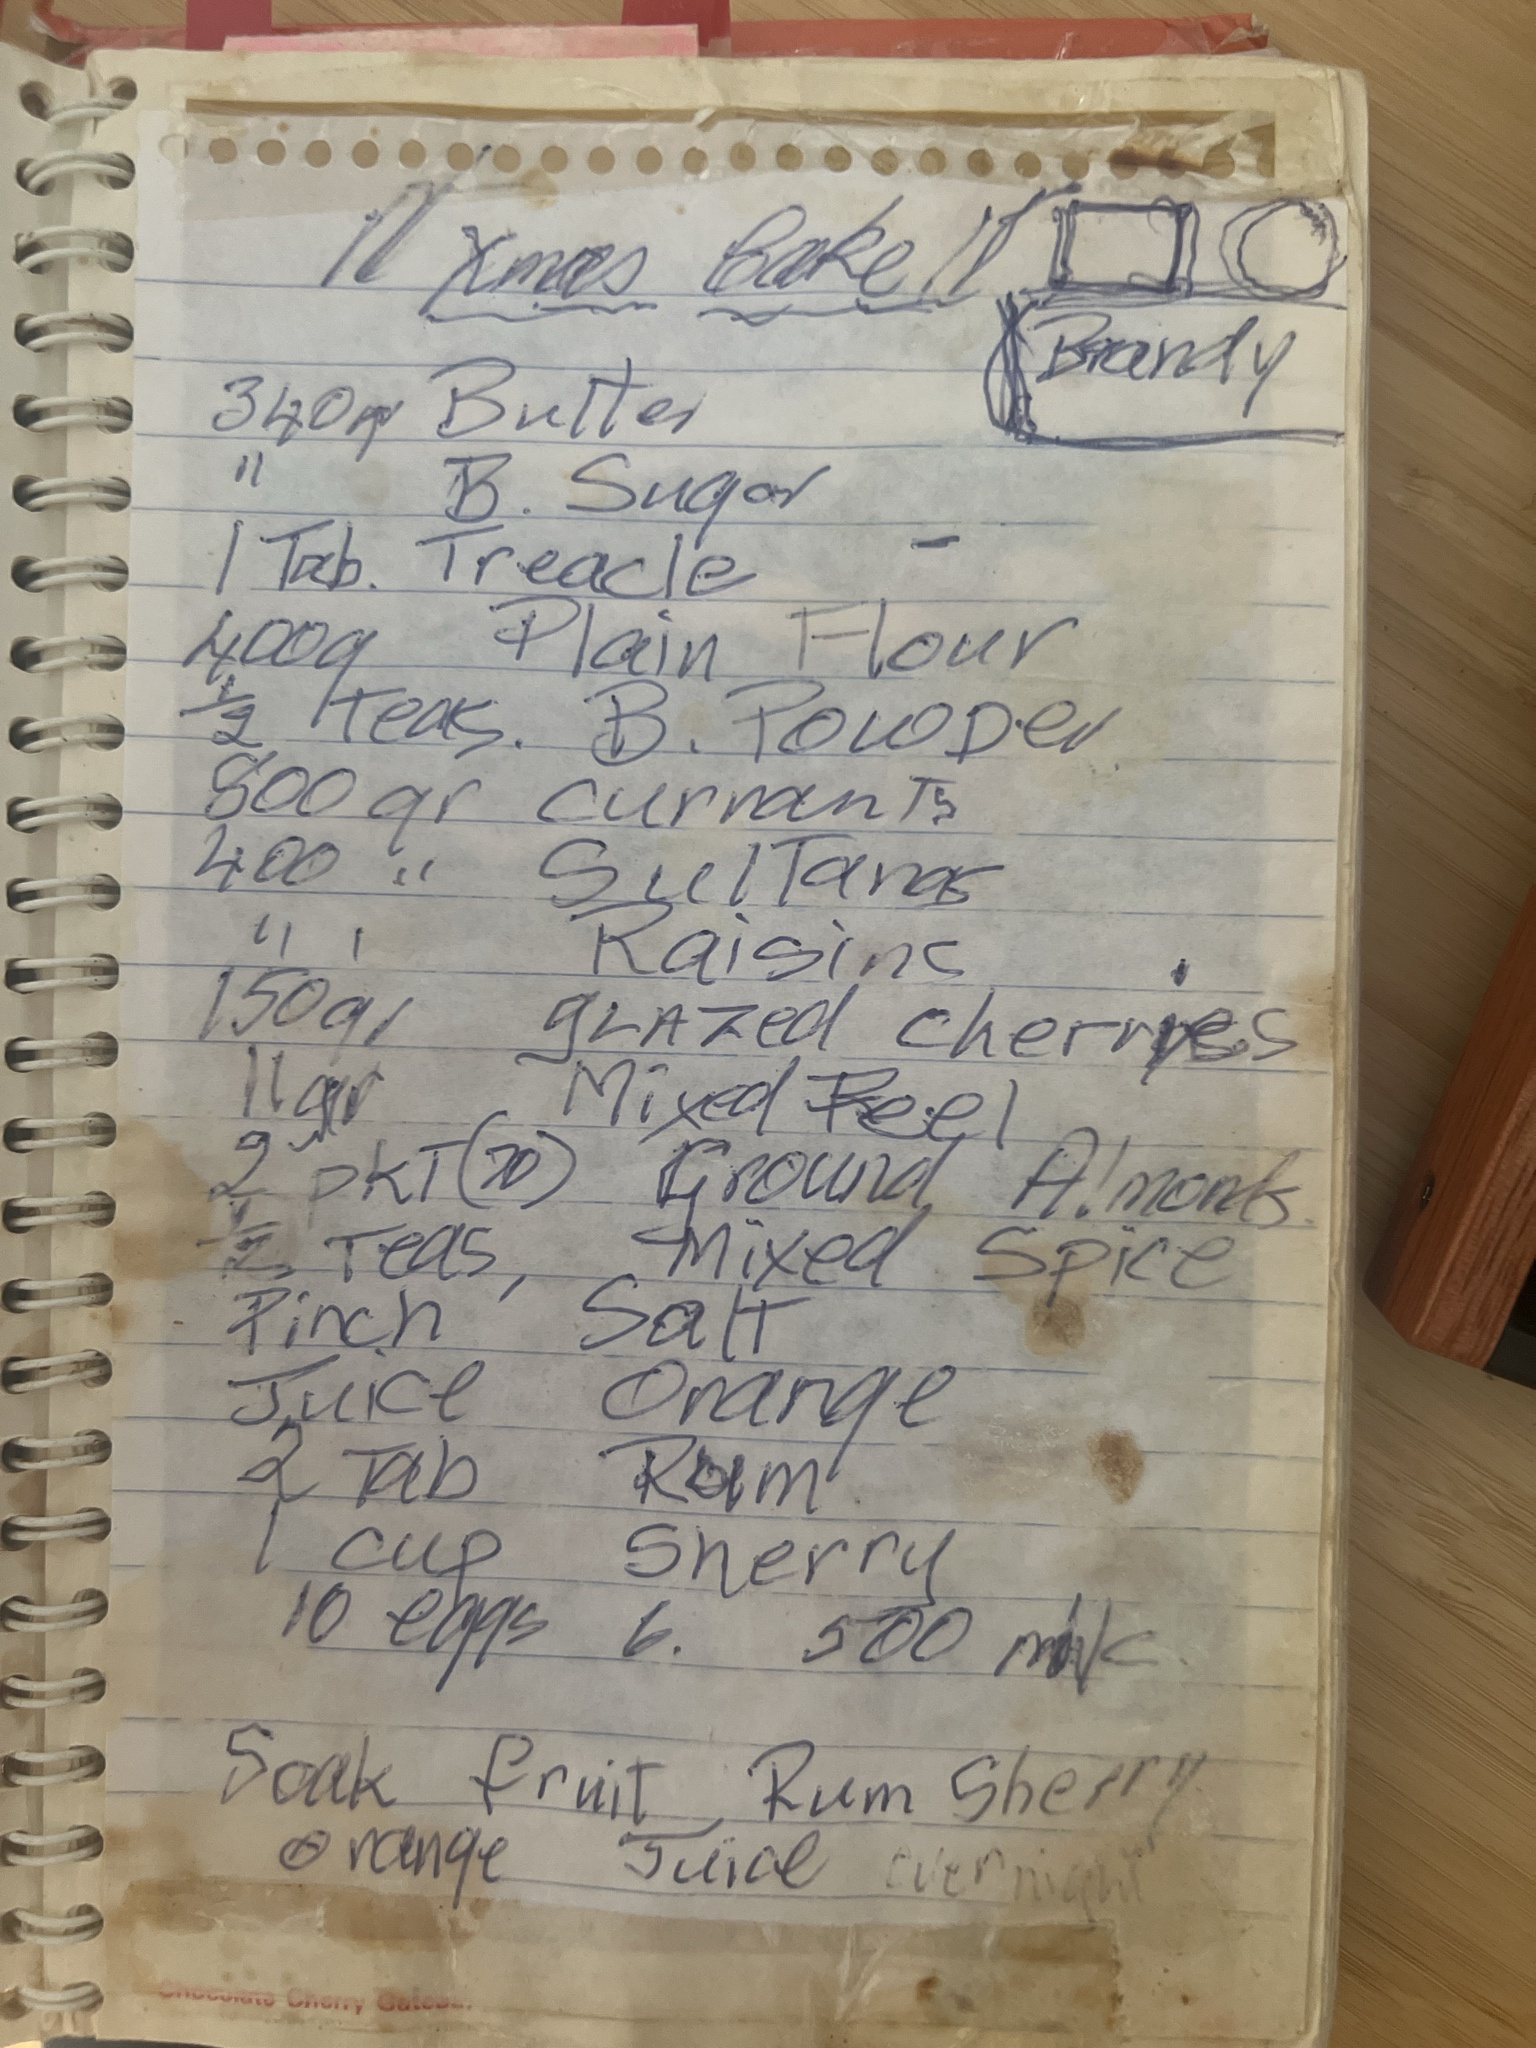 "Xmas Cake"
Brandy
340gr Butter
" B. Sugar
1 Tab. Treacle -
400g Plain Flour
½ Teas. B. Powder
800 gr currants
400 " Sultanas
" " Raisins
150gr glazed cherries
11gr Mixed Peel
2 pkt (70) Ground Almonds.
½ Teas, Mixed Spice
Pinch Salt
Juice Orange
2 Tab Rum
1 cup Sherry
10 eggs 6. 500
Soak fruit, Rum Sherry
Orange Juice overnight
Chocolate Cherry Gateau.